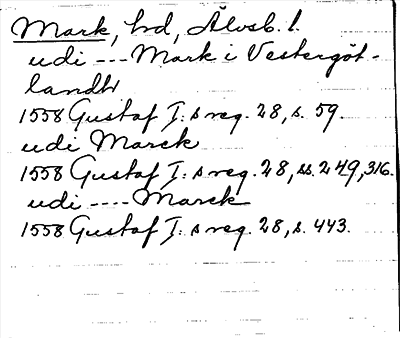 Mark, hd, Älvsb. l.
udi --- Mark i Vestergöt-
landh
1558 Gustaf I:s reg. 28, s. 59.
udi Marck
1558 Gustaf I:s reg. 28, ss. 249, 316.
udi ---- Marck
1558 Gustaf I:s reg. 28, s. 443.